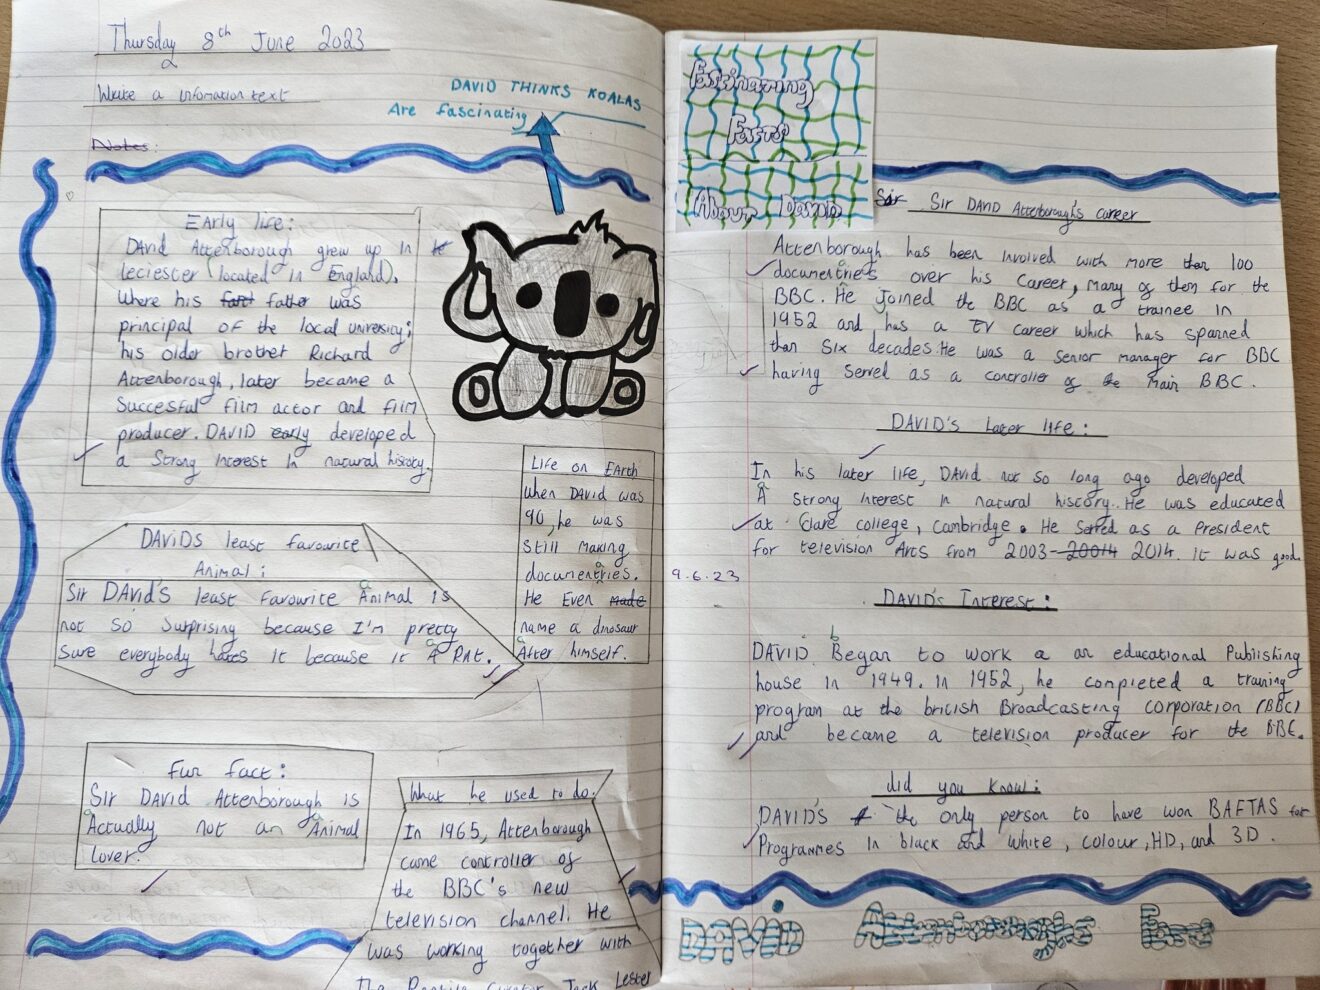 Thursday 8th June 2023
Write a infomation text
Notes:
DAVID THINKS KOALAS
Are fascinating
Early life:
DAVID Attenborough grew up in
leciester (located in England).
Where his farst father was
principal of the local university;
his older brother Richard
Attenborough, later became a
Succesful film actor and film
producer. DAVID early developed
a Strong interest in natural history.
DAVIDS least favourite
Animal:
Sir DAVID'S least favourite Animal is
not so surprising because I'm pretty
sure everybody hates it because it A RAt.
Life on Earth
When DAVID was
90, he was
still making
documentries.
He Even made
name a dinosaur
After himself.
Fun fact:
Sir DAVID Attenborough is
Actually not an Animal
Lover.
What he used to do:
In 1965, Attenborough
came controller of
the BBC's new
television channel. He
was working together with
Jack Lester
Fascinating
Facts
About David
Sir DAVID Attenborough's career
Attenborough has been involved with more than 100
documentries over his career, many of them for the
BBC. He joined the BBC as a trainee in
1952 and has a TV career which has spanned
than six decades. He was a senior manager for BBC
having served as a controller of the main BBC.
DAVID'S later life:
In his later life, DAVID not so long ago developed
A strong interest in natural history. He was educated
at Clare college, Cambridge. He served as a President
for television Arts from 2003-20014 2014. it was good.
9.6.23
DAVID'S Interest:
b
DAVID Began to work a an educational Publishing
house in 1949. in 1952, he completed a training
program at the british Broadcasting corporation (BBC)
and became a television producer for the BBC.
did you know:
DAVID'S the only person to have won BAFTAS for
Programmes in black and white, colour, HD, and 3D.
DAVID Attenborough's Fact